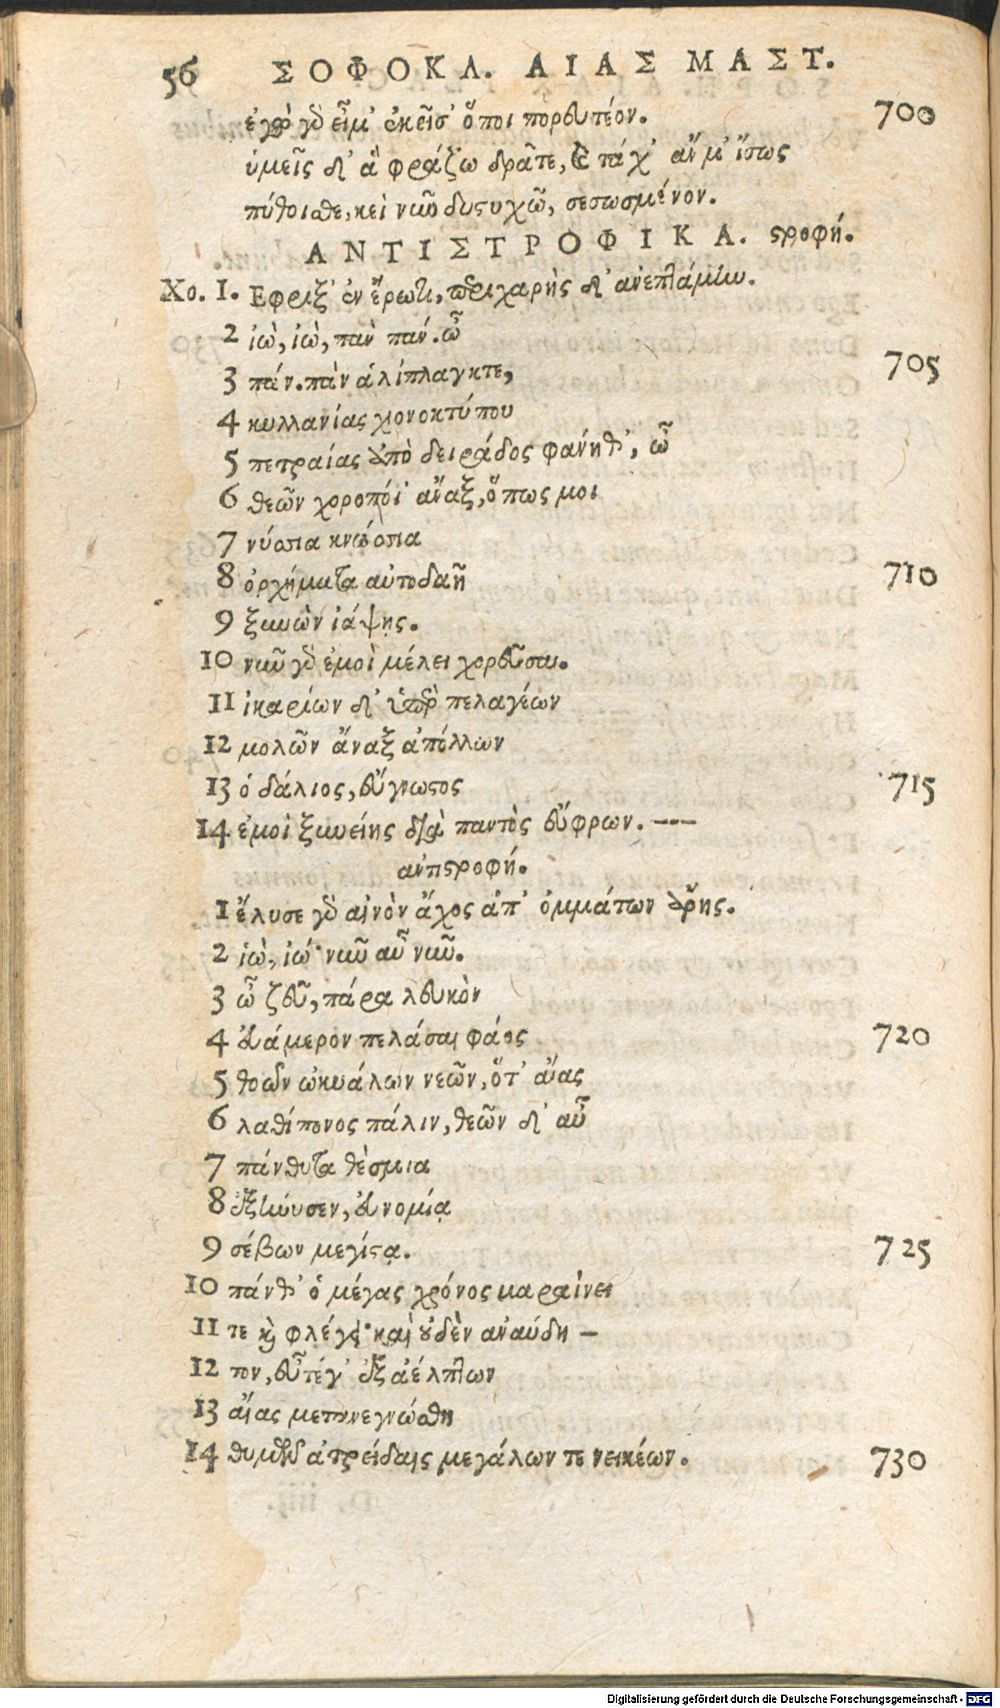 56 ΣΟΦΟΚΛ. ΑΙΑΣ ΜΑΣΤ.
ἐγὼ γὸ εἶμ' ἐκεῖσ' ὅποι πορευτέον. 700
ὑμεῖς δ' ἃ φράζω δρᾶτε, καὶ τάχ' ἄν μ' ἴσως
πύθοισθε, κεἰ νῦν δυστυχῶ, σεσωσμένον.
ΑΝΤΙΣΤΡΟΦΙΚΑ. στροφή.
Χο. 1. Εφριξ' ἐν ἔρωτι, περιχαρὴς δ' ἀνεπτάμην.
2 ἰὼ, ἰὼ, πὰν πάν. ὦ
3 πάν. πὰν ἁλίπλαγκτε, 705
4 κυλλανίας χιονοκτύπου
5 πετραίας ἀπὸ δειράδος φάνηθ', ὦ
6 θεῶν χοροποι' ἄναξ, ὅπως μοι
7 νύσσια κνώσσια
8 ὀρχήματα αὐτοδαῆ 710
9 ξυνὼν ἰάψῃς.
10 νῦν γὸ ἐμοὶ μέλει χορεῦσαι.
11 ἰκαρίων δ' ὑπὲρ πελαγέων
12 μολῶν ἄναξ ἀπόλλων
13 ὁ δάλιος, εὔγνωστος 715
14 ἐμοὶ ξυνείης διὰ παντὸς εὔφρων. ---
αντιστροφή.
1 ἔλυσε γὸ αἰνὸν ἄχος ἀπ' ὀμμάτων ἄρης.
2 ἰὼ, ἰώ· νῦν αὖ νῦν.
3 ὦ ζεῦ, πάρα λευκὸν
4 εὐάμερον πελάσαι φάος 720
5 θοᾶν ὠκυάλων νεῶν, ὅτ' αἴας
6 λαθίπονος πάλιν, θεῶν δ' αὖ
7 πάνθυτα θέσμια
8 ἐξήνυσεν, εὐνομίᾳ
9 σέβων μεγίστᾳ. 725
10 πάνθ' ὁ μέγας χρόνος μαραίνει
11 τε καὶ φλέγει· καὶ οὐδὲν ἀναύδη -
12 τον, εὖτέγ' ἐξ ἀέλπτων
13 αἴας μετανεγνώσθη
14 θυμῶν ἀτρείδαις μεγάλων τε νεικέων. 730
Digitalisierung gefördert durch die Deutsche Forschungsgemeinschaft - DFG